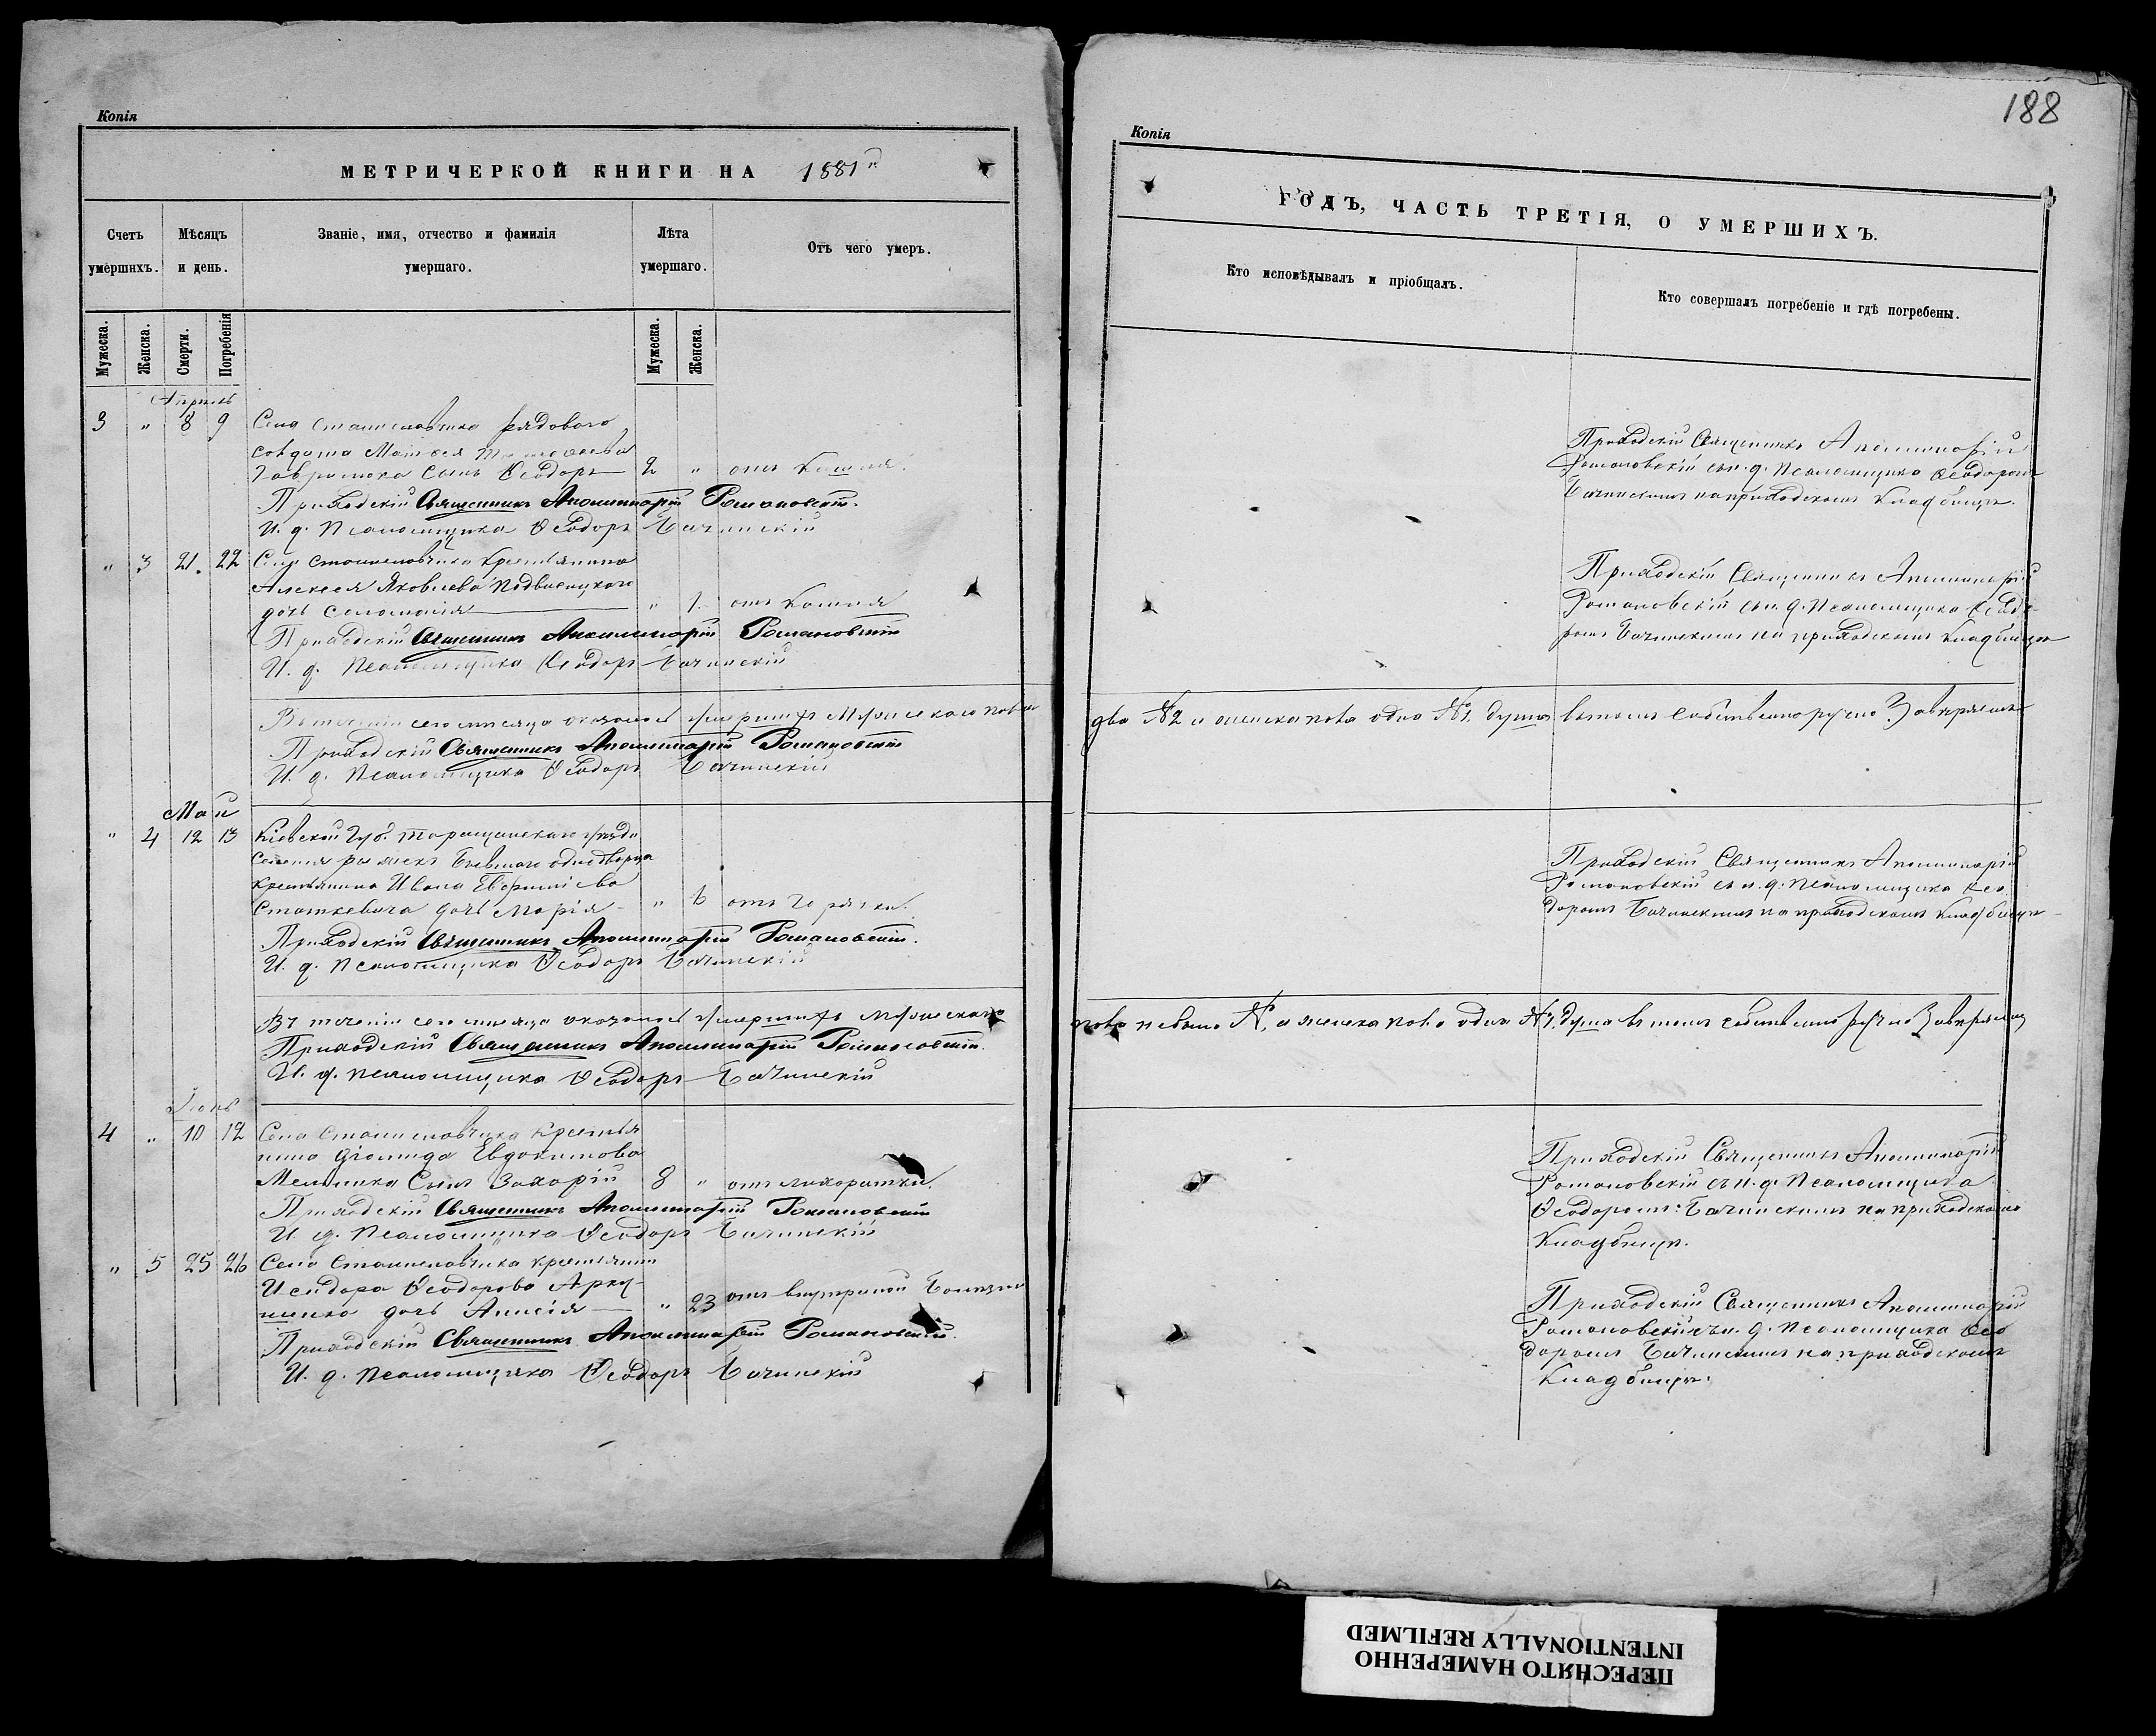 Копія
МЕТРИЧЕРКОЙ КНИГИ НА 1881й
Счетъ умершихъ.
Мѣсяцъ и день.
Званіе, имя, отчество и фамилія умершаго.
Лѣта умершаго.
Отъ чего умеръ.
Мужеска.
Женска.
Смерти.
Погребенія
Мужеска.
Женска.
Апрель
3 " 8 9 Села рядового
солдата
Гаврилюка сынъ Ѳеодоръ 2 " отъ Кашля.
Приходскій Священникъ Аполлинарій Романовскій.
И. д. Псаломщика Ѳеодоръ Бачинскій
" 3 21. 22 Села крестьянина
Алексея Яковлева Подвысоцкаго
дочь Соломонія " 1. отъ Кашля
Приходскій Священникъ Аполлинарій Романовскій
И. д. Псаломщика Ѳеодоръ Бачинскій
Въ теченіи сего месяца оказалось умершихъ Мужеска пола
Приходскій Священникъ Аполлинарій Романовскій
И. д. Псаломщика Ѳеодоръ Бачинскій
Май
" 4 12 13 Кіевской Губ. Таращанскаго уезда
бывшаго однодворца
крестьянина Ивана
Статкевича дочь Марія " 6 отъ Горячки.
Приходскій Священникъ Аполлинарій Романовскій.
И. д. Псаломщика Ѳеодоръ Бачинскій
Въ теченіи сего месяца оказалось умершихъ Мужеска
Приходскій Священникъ Аполлинарій Романовскій.
И. д. Псаломщика Ѳеодоръ Бачинскій
Іюнь
4 " 10 12 Села Крестья
нина Діомида Евдокимова
Мельника Сынъ Захарій 8 " отъ лихорадки.
Приходскій Священникъ Аполлинарій Романовскій
И. д. Псаломщика Ѳеодоръ Бачинскій
" 5 25 26 Села крестьянина
Исидора Ѳеодорова
дочь Анисія " 23 отъ внутреной Болезни
Приходскій Священникъ Аполлинарій Романовскій.
И. д. Псаломщика Ѳеодоръ Бачинскій
188
Копія
ГОДЪ, ЧАСТЬ ТРЕТІЯ, О УМЕРШИХЪ.
Кто исповѣдывалъ и пріобщалъ.
Кто совершалъ погребеніе и гдѣ погребены.
Приходскій Священникъ Аполлинарій
Романовскій съ и. д. Псаломщика Ѳеодоромъ
Бачинскимъ на приходскомъ Кладбище.
Приходскій Священникъ Аполлинарій
Романовскій съ и. д. Псаломщика Ѳеодо-
ромъ Бачинскимъ на приходскомъ Кладбище
два №2 и женска пола одна №1. душа въ томъ собственноручно Заверяемъ
Приходскій Священникъ Аполлинарій
Романовскій съ и. д. Псаломщика Ѳео
доромъ Бачинскимъ на приходскомъ Кладбище
пола небыло №, а женска пола одна №1. душа въ томъ собственноручно Заверяемъ
Приходскій Священникъ Аполлинарій
Романовскій съ и. д. Псаломщика
Ѳеодоромъ Бачинскимъ на приходскомъ
Кладбище.
Приходскій Священникъ Аполлинарій
Романовскій съ и. д. Псаломщика Ѳео
доромъ Бачинскимъ на приходскомъ
Кладбище.
ПЕРЕСНЯТО НАМЕРЕННО
INTENTIONALLY REFILMED